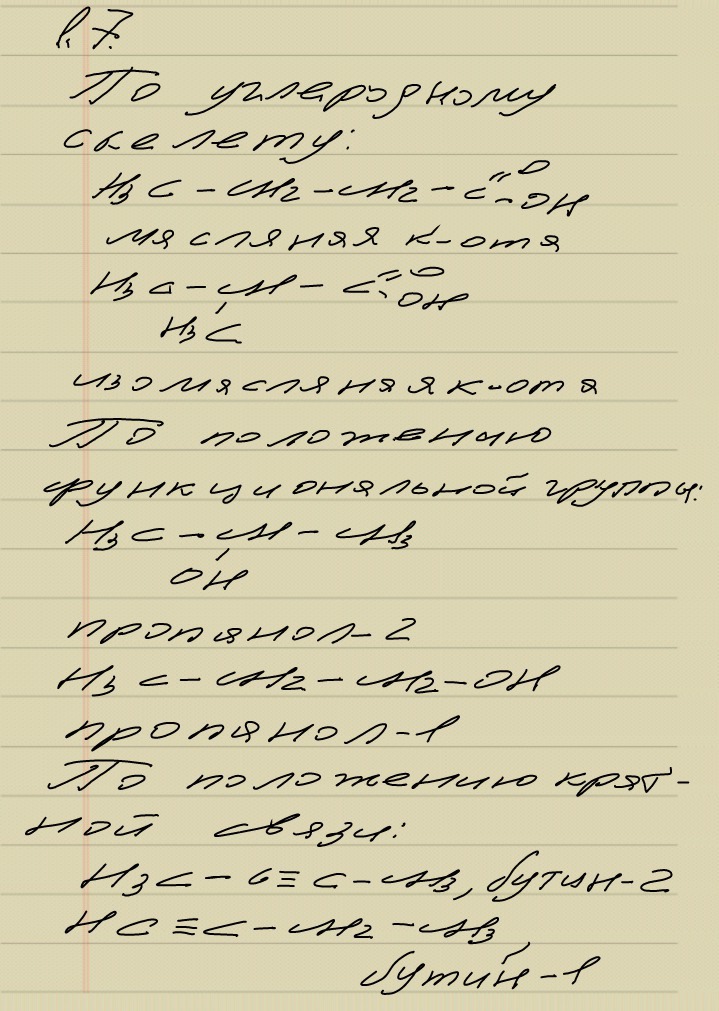 1.7.
По углеродному
скелету:
H3C - CH2 - CH2 - C=O -OH
масляная к-ота
H3C - CH - C=O -OH
H3C
изомасляная к-ота
По положению
функциональной группы:
H3C - CH - CH3
OH
пропанол-2
H3C - CH2 - CH2 - OH
пропанол-1
По положению крат-
ной связи:
H3C - C≡C - CH3, бутин-2
HC≡C - CH2 - CH3
бутин-1